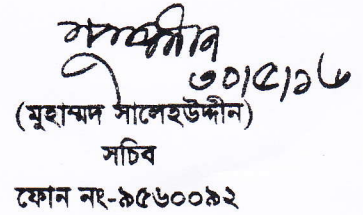 ৩০/৫/১৬
(মুহাম্মদ সালেহউদ্দীন)
সচিব
ফোন নং-৯৫৬০০৯২